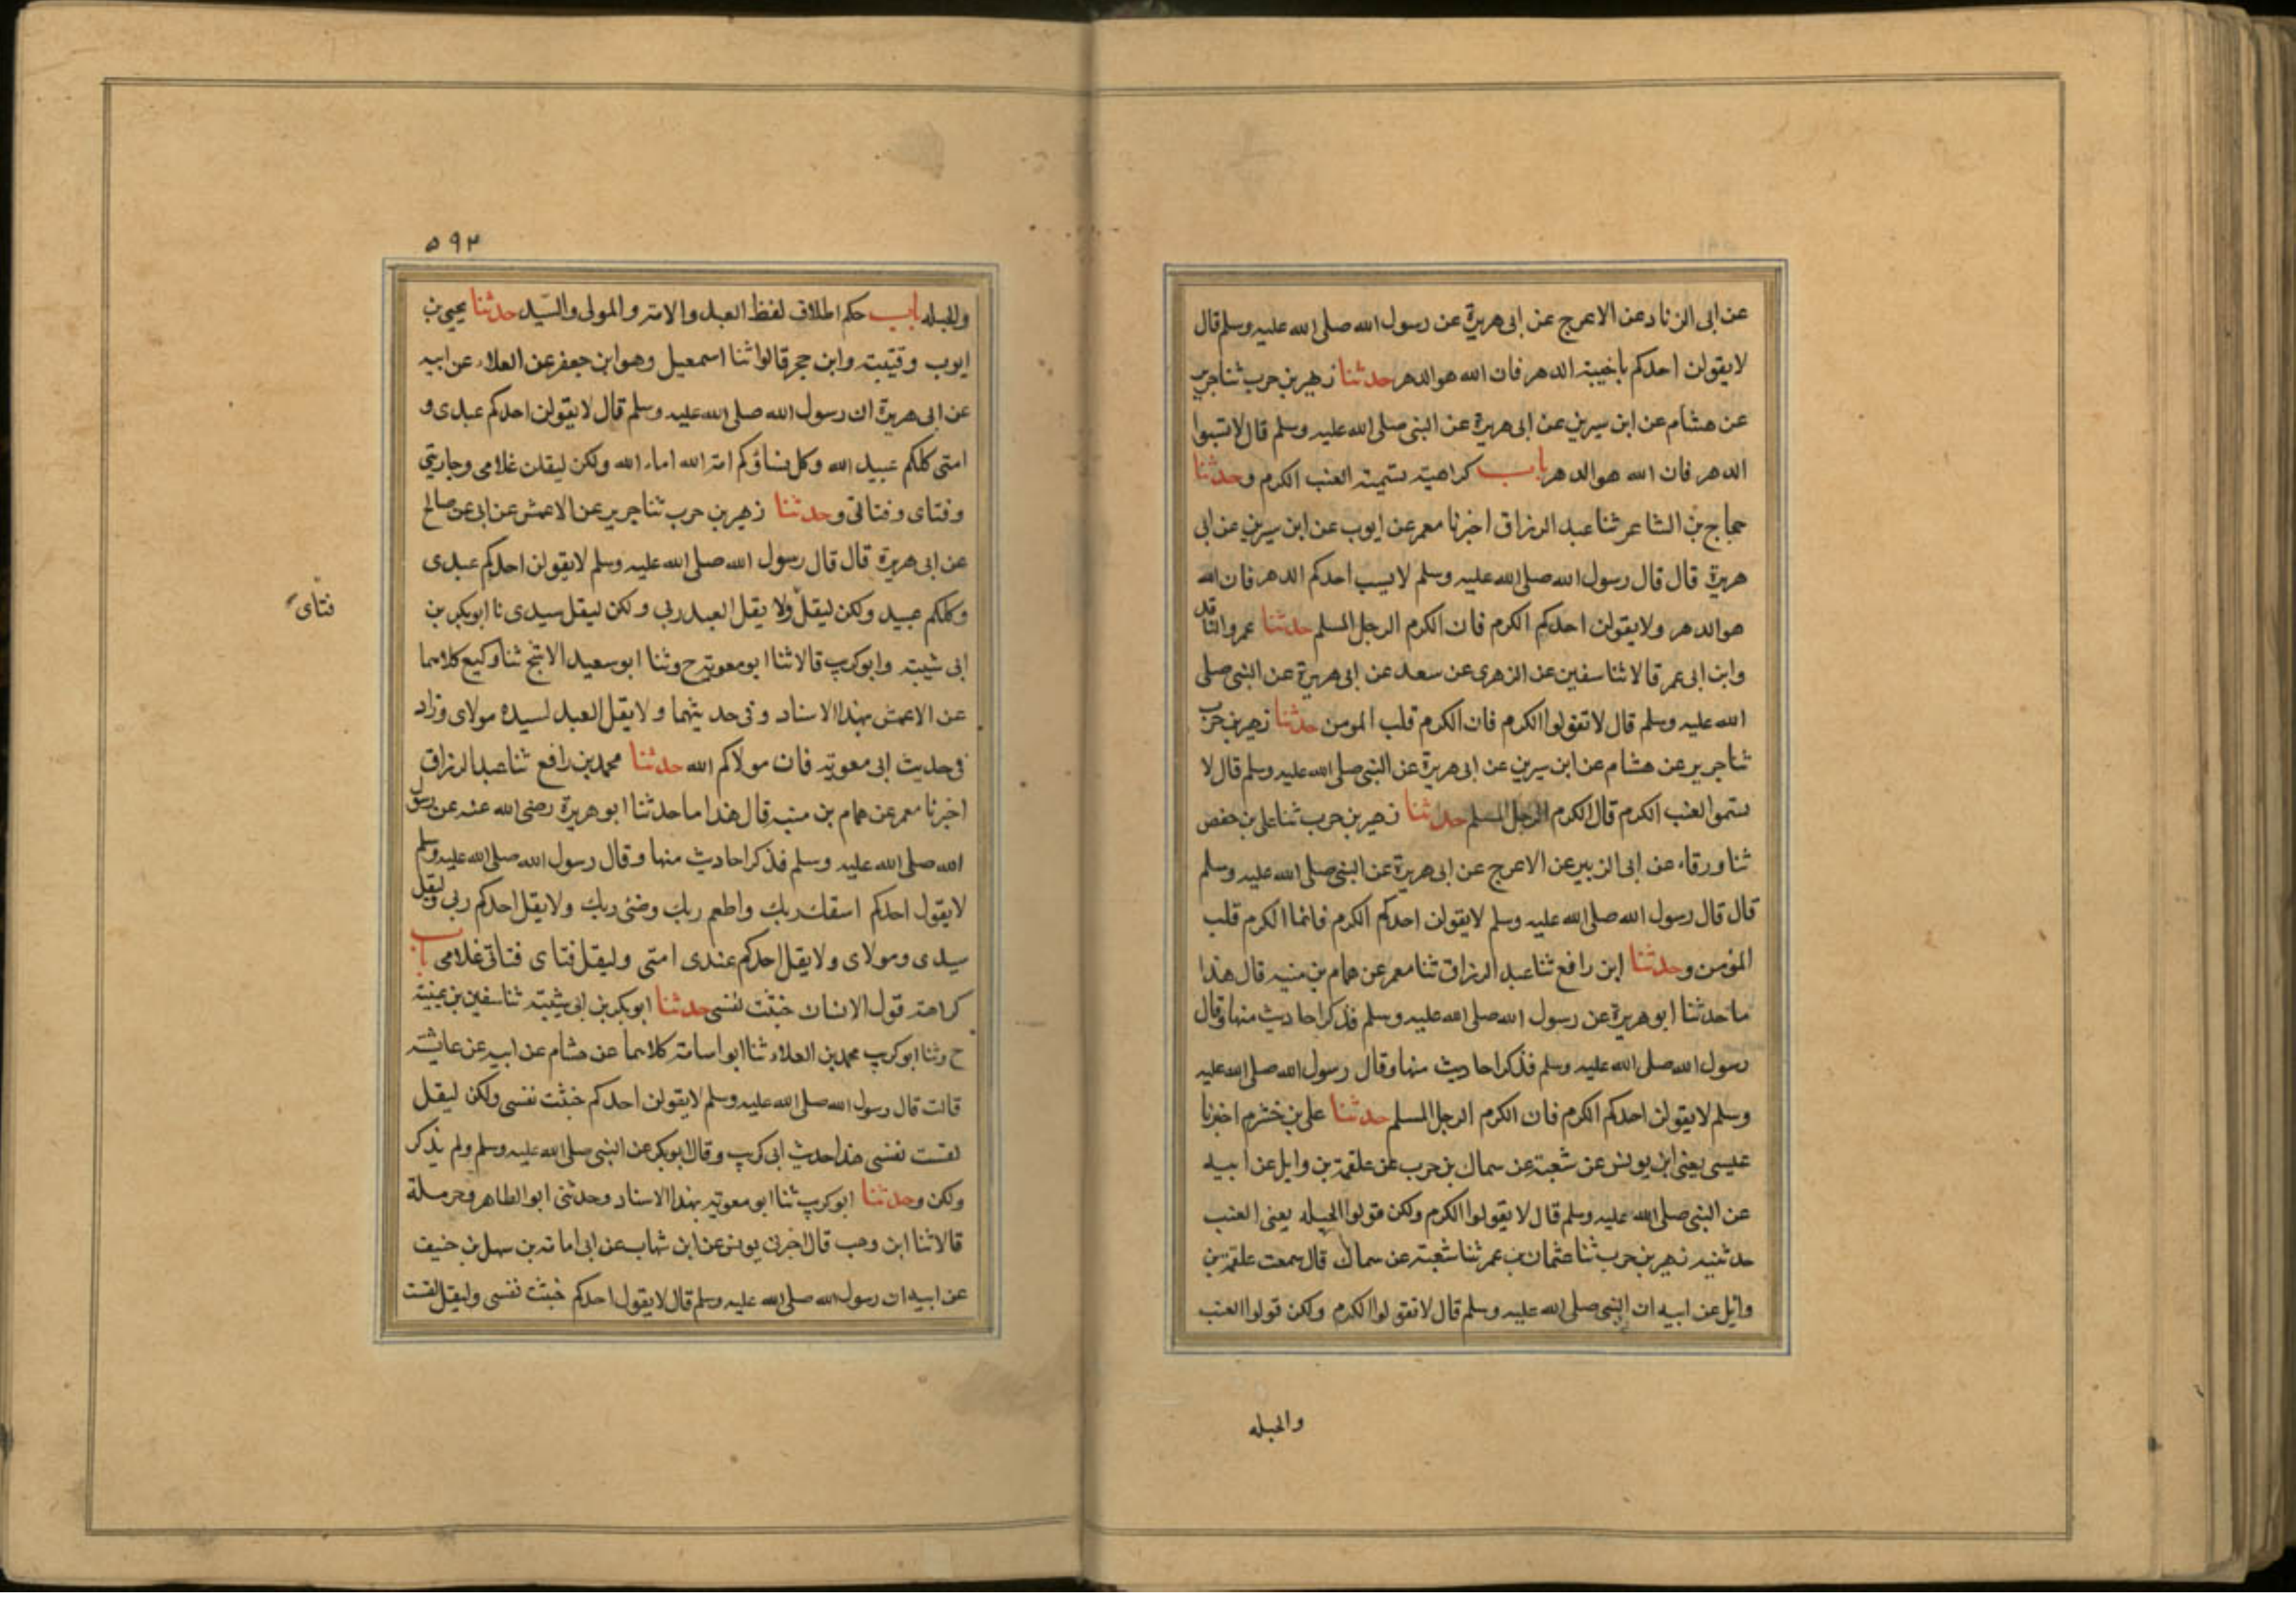 عن ابى الزناد عن الاعرج عن ابى هريرة عن رسول الله صلى الله عليه وسلم قال
لا يقولن احدكم ياخيبة الدهر فان الله هو الدهر حدثنا زهير بن حرب ثنا جرير
عن هشام عن ابن سيرين عن ابى هريرة عن النبى صلى الله عليه وسلم قال لا تسبوا
الدهر فان الله هو الدهر باب كراهية تسمية العنب الكرم وحدثنا
حجاج بن الشاعر ثنا عبد الرزاق اخبرنا معمر عن ايوب عن ابن سيرين عن ابى
هريرة قال قال رسول الله صلى الله عليه وسلم لا يسب احدكم الدهر فان الله
هو الدهر ولا يقولن احدكم الكرم فان الكرم الرجل المسلم حدثنا عمرو الناقد
وابن ابى عمر قالا ثنا سفين عن الزهرى عن سعد عن ابى هريرة عن النبى صلى
الله عليه وسلم قال لا تقولوا الكرم فان الكرم قلب المومن حدثنا زهير بن حرب
ثنا جرير عن هشام عن ابن سيرين عن ابى هريرة عن النبى صلى الله عليه وسلم قال لا
تسموا العنب الكرم قال الكرم الرجل المسلم حدثنا زهير بن حرب ثنا على بن حفص
ثنا ورقاء عن ابى الزبير عن الاعرج عن ابى هريرة عن النبى صلى الله عليه وسلم
قال قال رسول الله صلى الله عليه وسلم لا يقولن احدكم الكرم فانما الكرم قلب
المؤمن وحدثنا ابن رافع ثنا عبد الرزاق ثنا معمر عن همام بن منبه قال هذا
ما حدثنا ابو هريرة عن رسول الله صلى الله عليه وسلم فذكر احاديث منها وقال
رسول الله صلى الله عليه وسلم فذكر احاديث منها وقال رسول الله صلى الله عليه
وسلم لا يقولن احدكم الكرم فان الكرم الرجل المسلم حدثنا على بن خشرم اخبرنا
عيسى يعنى ابن يونس عن شعبة عن سماك بن حرب عن علقمة بن وايل عن ابيه
عن النبى صلى الله عليه وسلم قال لا يقولوا الكرم ولكن قولوا الحبله يعنى العنب
حدثنيه زهير بن حرب ثنا عثمان بن عمر ثنا شعبة عن سماك قال سمعت علقمة بن
وائل عن ابيه ان النبى صلى الله عليه وسلم قال لا تقولوا الكرم ولكن قولوا العنب
والحبله
٥٩٢
والحبله باب حكم اطلاق لفظ العبد والامة والمولى والسيد حدثنا يحيى بن
ايوب وقتيبة وابن حجر قالوا ثنا اسمعيل وهو ابن جعفر عن العلاء عن ابيه
عن ابى هريرة ان رسول الله صلى الله عليه وسلم قال لا يقولن احدكم عبدى و
امتى كلكم عبيد الله وكل نساؤكم امة الله اماء الله ولكن ليقلن غلامى وجاريتى
وفتاى وفتاتى وحدثنا زهير بن حرب ثنا جرير عن الاعمش عن ابى عن صالح
عن ابى هريرة قال قال رسول الله صلى الله عليه وسلم لا يقولن احدكم عبدى
وكلكم عبيد ولكن ليقل ولا يقل العبد ربى ولكن ليقل سيدى نا ابو بكر بن
فتاى
ابى شيبة وابو كريب قالا ثنا ابو معوية ح وثنا ابو سعيد الاشج ثنا وكيع كلاهما
عن الاعمش بهذا الاسناد وفى حديثهما ولا يقل العبد لسيده مولاى وزاد
فى حديث ابى معوية فان مولاكم الله حدثنا محمد بن رافع ثنا عبد الرزاق
اخبرنا معمر عن همام بن منبه قال هذا ما حدثنا ابو هريرة رضى الله عنه عن رسول
الله صلى الله عليه وسلم فذكر احاديث منها وقال رسول الله صلى الله عليه وسلم
لا يقول احدكم اسقك ربك واطعم ربك وضئ ربك ولا يقل احدكم ربى وليقل
سيدى ومولاى ولا يقل احدكم عندى امتى وليقل فتاى فتاتى غلامى باب
كراهة قول الانسان خبثت نفسى حدثنا ابو بكر بن ابى شيبة ثنا سفين بن عيينة
ح وثنا ابو كريب محمد بن العلاء ثنا ابو اسامة كلاهما عن هشام عن ابيه عن عايشة
قالت قال رسول الله صلى الله عليه وسلم لا يقولن احدكم خبثت نفسى ولكن ليقل
لقست نفسى هذا حديث ابى كريب وقال ابو بكر عن النبى صلى الله عليه وسلم ولم يذكر
ولكن وحدثنا ابو كريب ثنا ابو معوية بهذا الاسناد وحدثنى ابو الطاهر وحرملة
قالا ثنا ابن وهب قال اخبرنى يونس عن ابن شهاب عن ابى امامة بن سهل بن حنيف
عن ابيه ان رسول الله صلى الله عليه وسلم قال لا يقول احدكم خبثت نفسى وليقل لقست